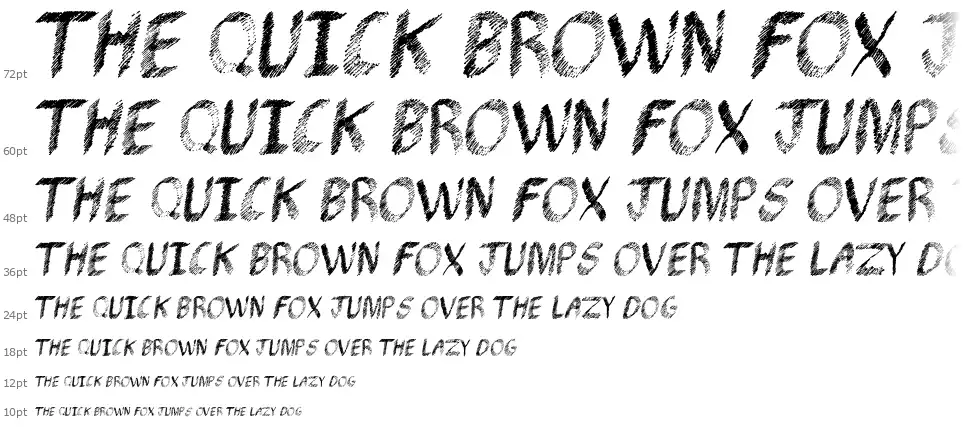 72pt THE QUICK BROWN FOX J
60pt THE QUICK BROWN FOX JUMPS
48pt THE QUICK BROWN FOX JUMPS OVER
36pt THE QUICK BROWN FOX JUMPS OVER THE LAZY DO
24pt THE QUICK BROWN FOX JUMPS OVER THE LAZY DOG
18pt THE QUICK BROWN FOX JUMPS OVER THE LAZY DOG
12pt THE QUICK BROWN FOX JUMPS OVER THE LAZY DOG
10pt THE QUICK BROWN FOX JUMPS OVER THE LAZY DOG